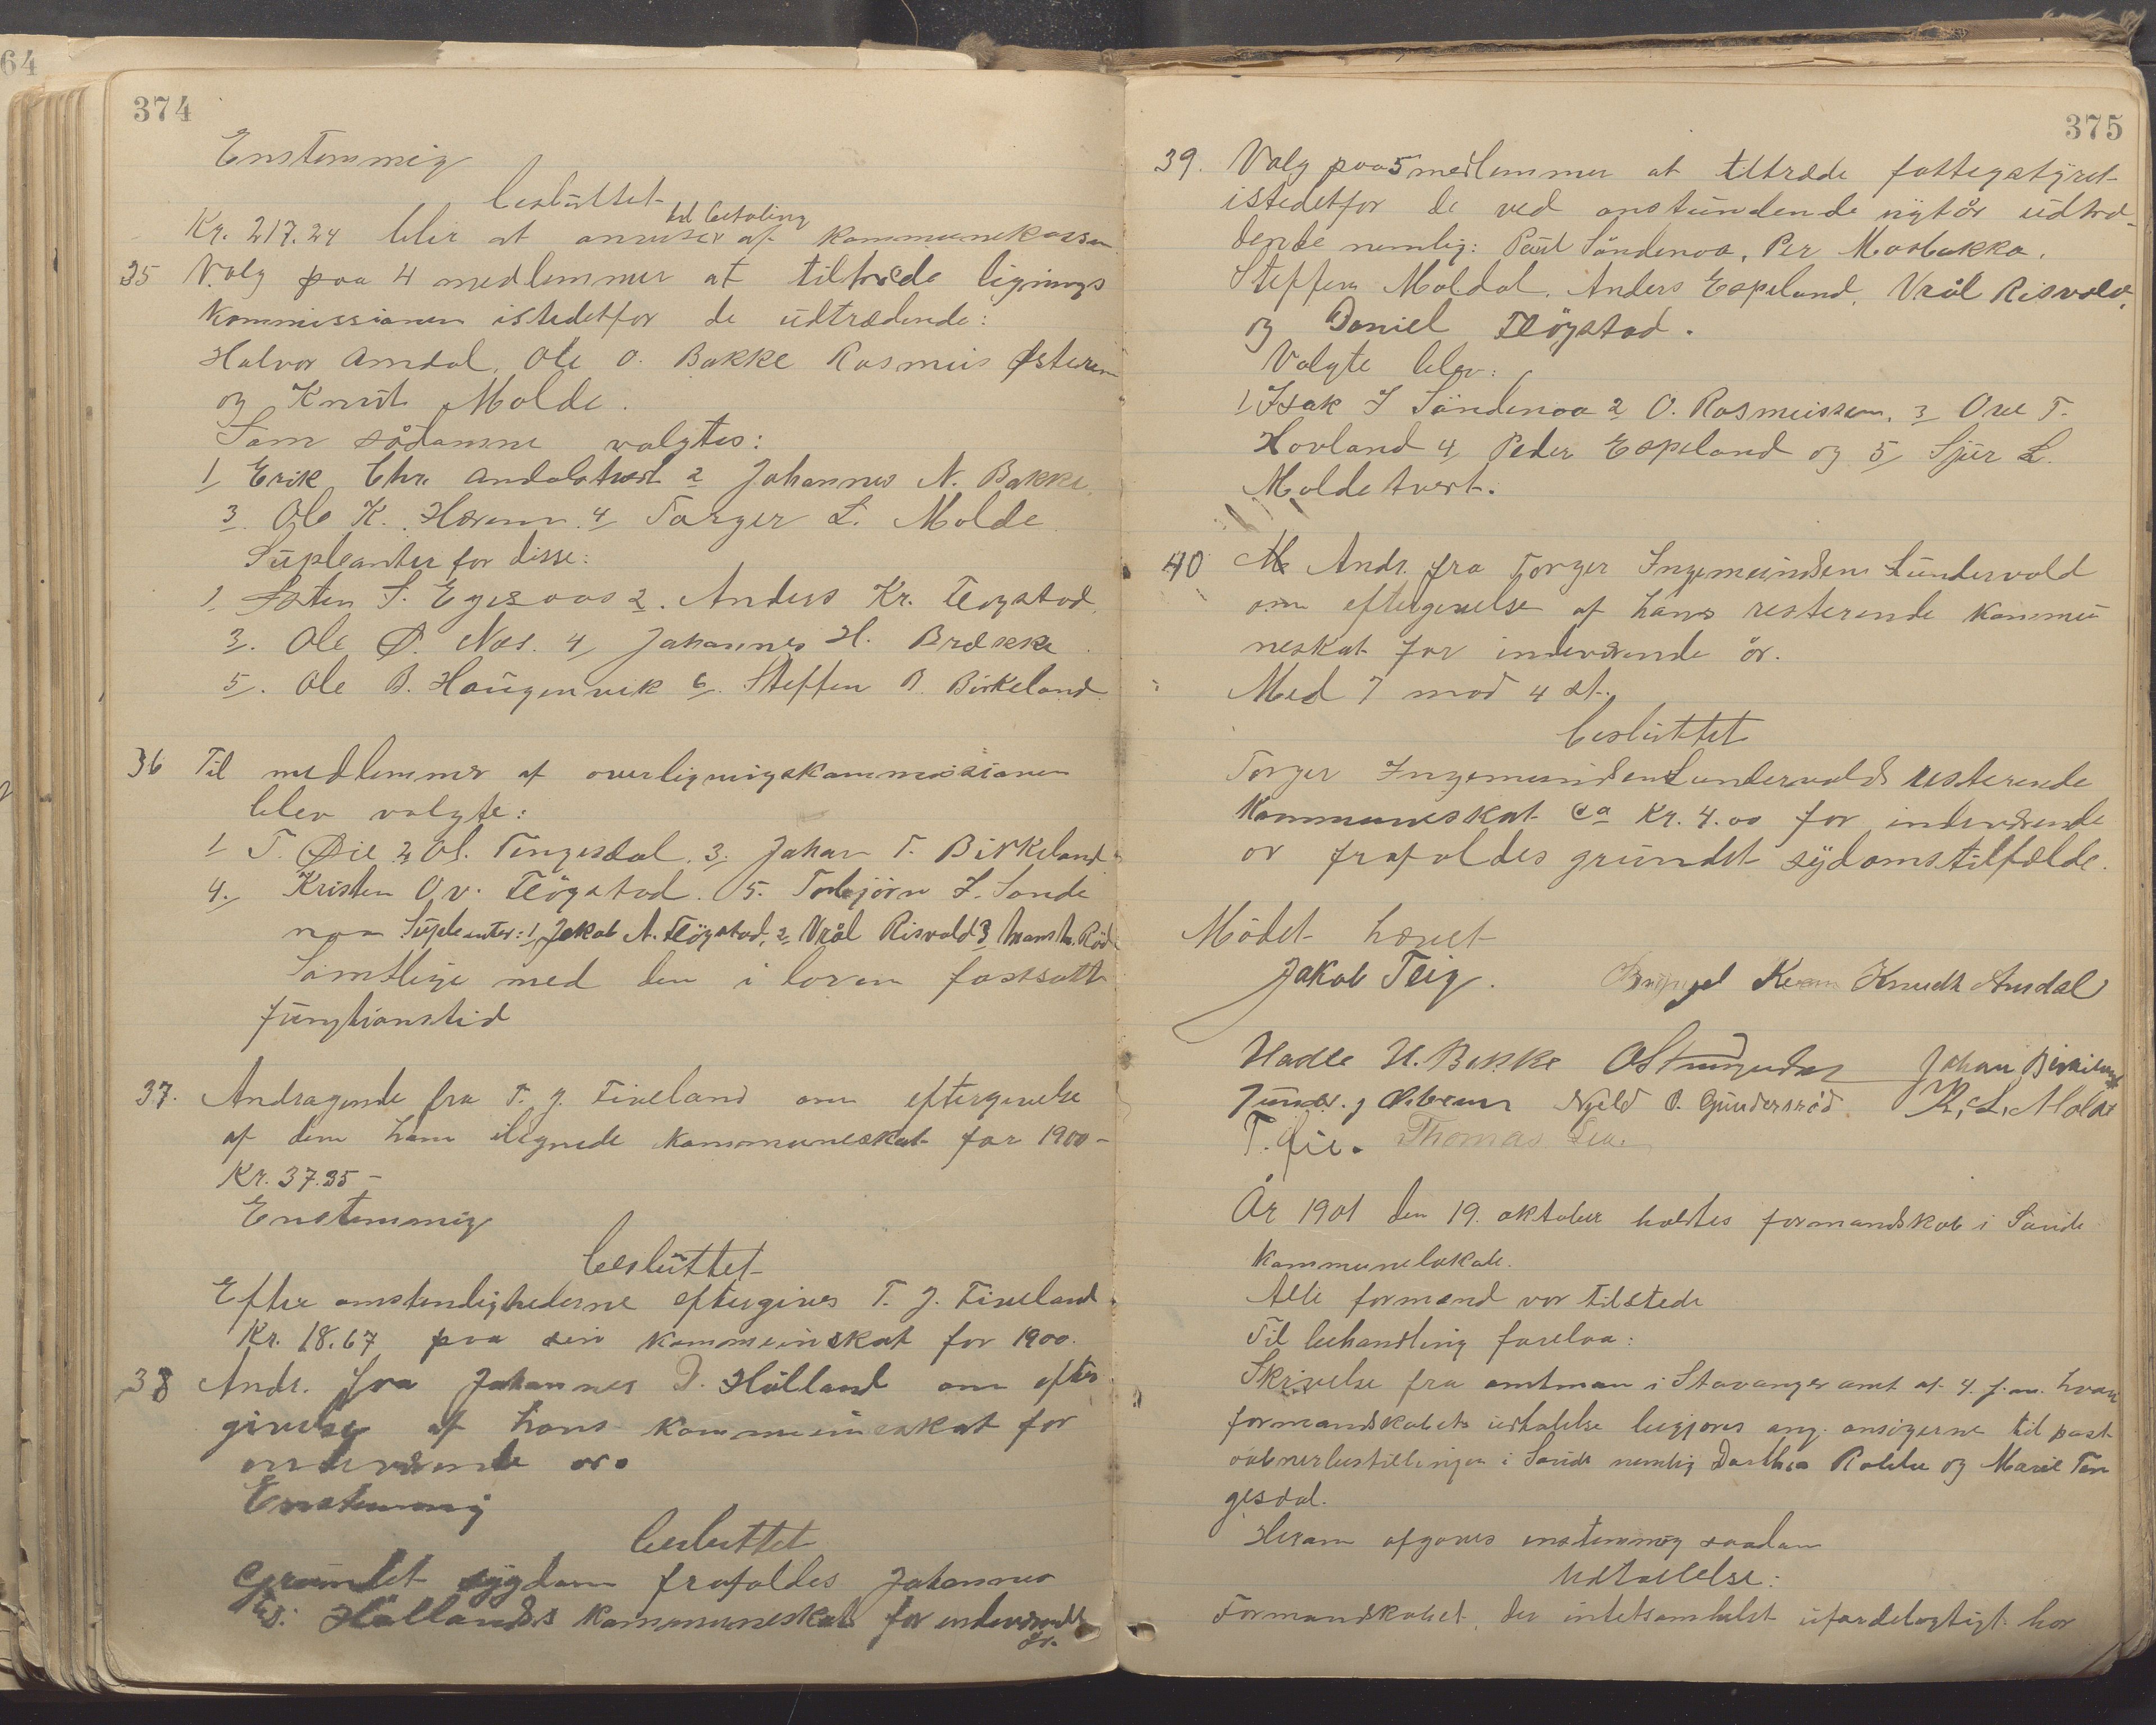 64
374
Enstemmig
besluttet
Kr. 217.24 blir at anviser til betaling af kommunekassen
35 Valg paa 4 medlemmer at tiltræde lignings
kommissionen istedetfor de udtrædende:
Halvor Amdal, Ole O. Bakke Rasmus Østerem
og Knut Molde.
Som sådanne valgtes:
1 Erik Chr. Amdalstvest 2 Johannes N. Bakke.
3. Ole K. Hærem. 4 Torger L. Molde
Supleanter for disse:
2. Anders Kr. Fløgstad.
3. Ole Ø. Næs. 4 Johannes H. Brække
5. Ole B. Haugenvik 6. Steffen B. Birkeland.
36 Til medlemmer af overligningskommissionen
blev valgte:
1 T. Øie 2 Ol. Tengesdal. 3. Johan T. Birkeland
4. Kristen Ov. Fløgstad. 5. Torbjörn I. Sande
noa Supleanter: 1, Jakob A. Fløgstad, 2, Vrål Risvold 3
Samtlige med den i loven fastsatte
fungtionstid
37. Andragende fra T. J. Fiveland om eftergivelse
af dem ham ilignede kommuneskat for 1900 –
Kr. 37.35 –
Enstemmig
besluttet
Efter omstendighederne eftergives T. J. Fiveland
Kr. 18.67 paa sin kommuneskat for 1900.
38 Andr. fra Johannes D. Hålland om efter
givelse af hans kommuneskat for
indeværende år.
Enstemmig
besluttet
Grundet sygdom frafaldes Johannes
D. Hållands kommuneskat for indeværende
år.
375
39. Valg paa 5 medlemmer at tiltræde fattigstyret
istedetfor de ved anstundende nytår udtræ-
dende nemlig: Paul Söndenaa, Per Mosbakka,
Steffen Moldal, Anders Espeland, Vrål Risvold,
og Daniel Fløgstad.
Valgte blev:
1 Isak I Söndenaa 2 O. Rasmussen, 3 Ove T.
Hovland 4, Peder Espeland og 5, Sjur L.
Moldetvert.
40 Andr. fra Torger Ingemundsen Lundervold
om eftergivelse af hans resterende kommu
neskat for indeværende år.
Med 7 mod 4 st.
besluttet
Torger Ingemundsen Lundervolds resterende
kommuneskat ca Kr. 4.00 for indeværende
år frafaldes grundet sydomstilfælde.
Mödet hævet
Jakob Teig. Knudt Amdal
Hadle H. Bakke Johan Birkeland
Njeld O. Gundersröd K. L. Molde
T. Øie. Thomas
År 1901 den 19. oktober holdtes formandskab i Sande
kommunelokale.
Alle formænd var tilstede
Til behandling forelaa:
Skrivelse fra amtman i Stavanger amt af 4. f.m. hvori
formandskabets udtalelse begjæres ang. ansögerne til post
åbnerbestillingen i Sande nemlig Dorthea Rabbe og Marie Ten
gesdal.
Herom afgaves enstemmig saadan
Udtalelse:
Formandskabet, der intetsomhelst ufordelagtigt har